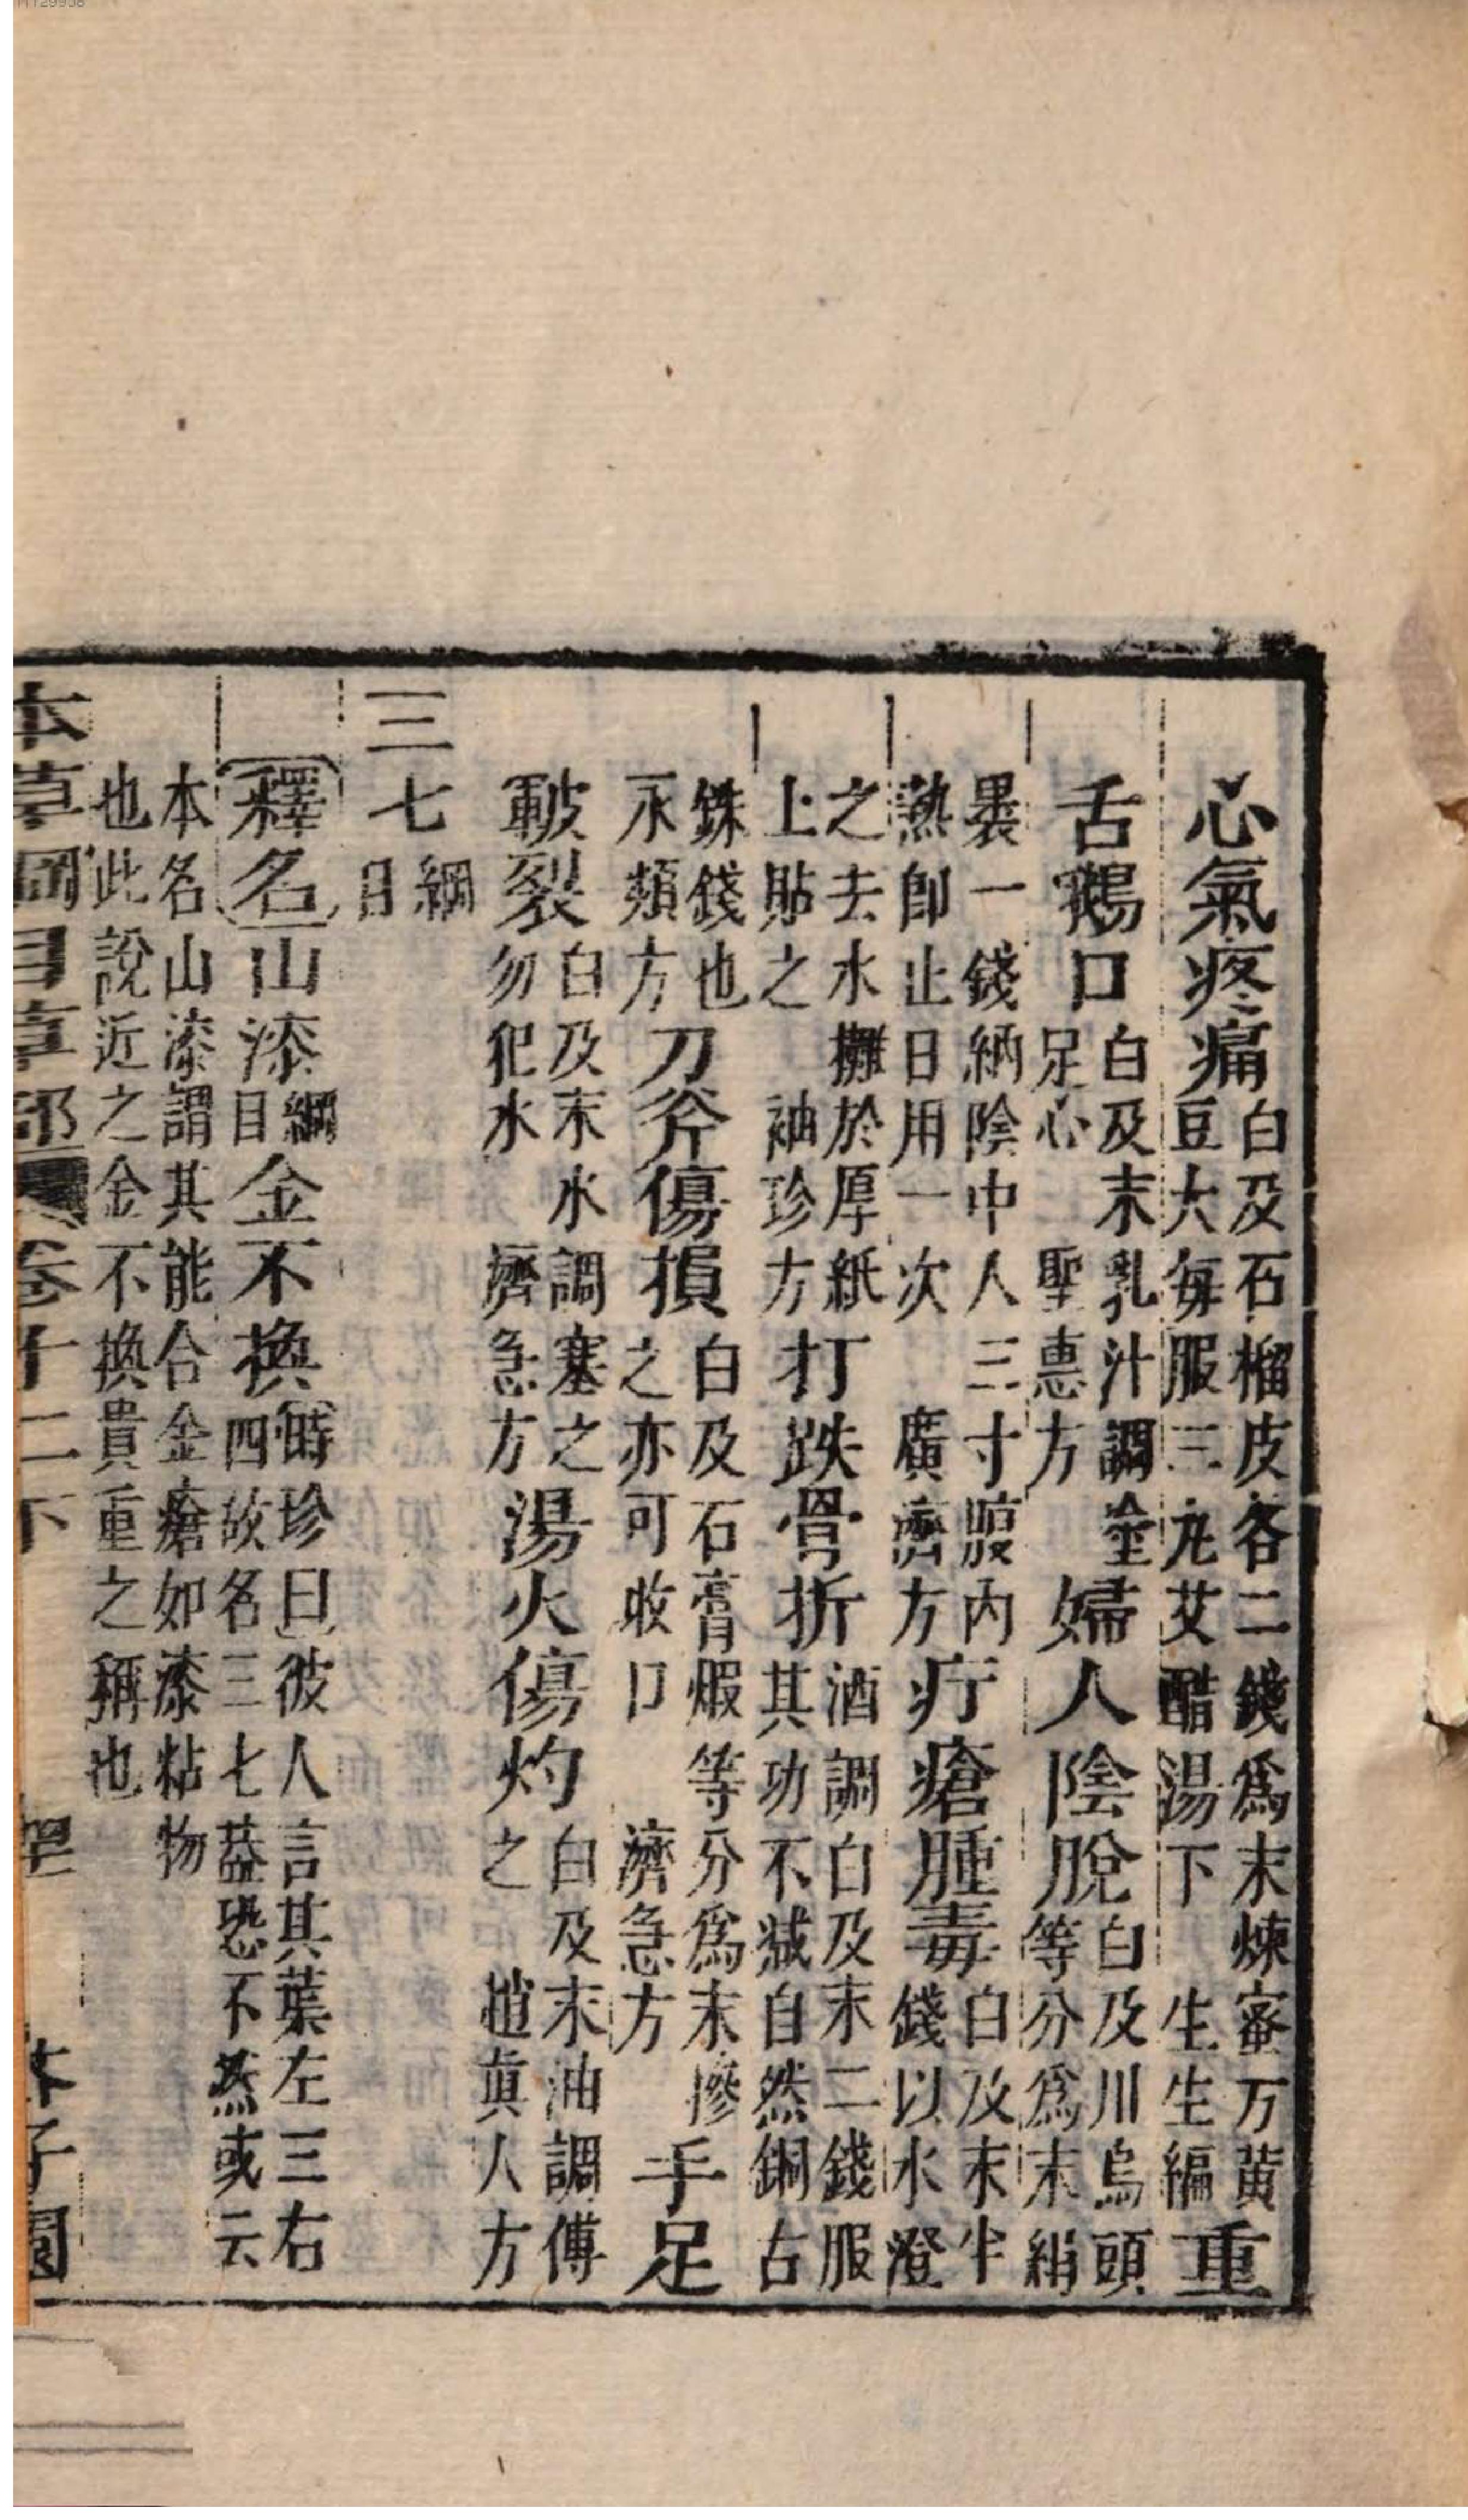 心氣疼痛白及石榴皮各二錢爲末煉蜜丸黃豆大每服三丸艾醋湯下　生生編重
舌鵝口白及末乳汁調塗足心　聖惠方婦人陰脫白及川烏頭等分爲末絹
裹一錢納陰中入三寸腹内熱卽止日用一次　廣濟方疔瘡腫毒白及末半錢以水澄
之去水攤於厚紙上貼之　袖珍方打跌骨折酒調白及末二錢服其功不減自然銅古
銖錢也永類方刀斧傷損白及石膏煅等分爲末摻之亦可收口　濟急方手足
皸裂白及末水調塞之勿犯水　濟急方湯火傷灼白及末油調傅之　趙眞人方
三七綱目
釋名山漆綱目金不換時珍曰彼人言其葉左三右四故名三七葢恐不然或云
本名山漆謂其能合金瘡如漆粘物也此說近之金不換貴重之稱也
本草綱目草部 卷十二下